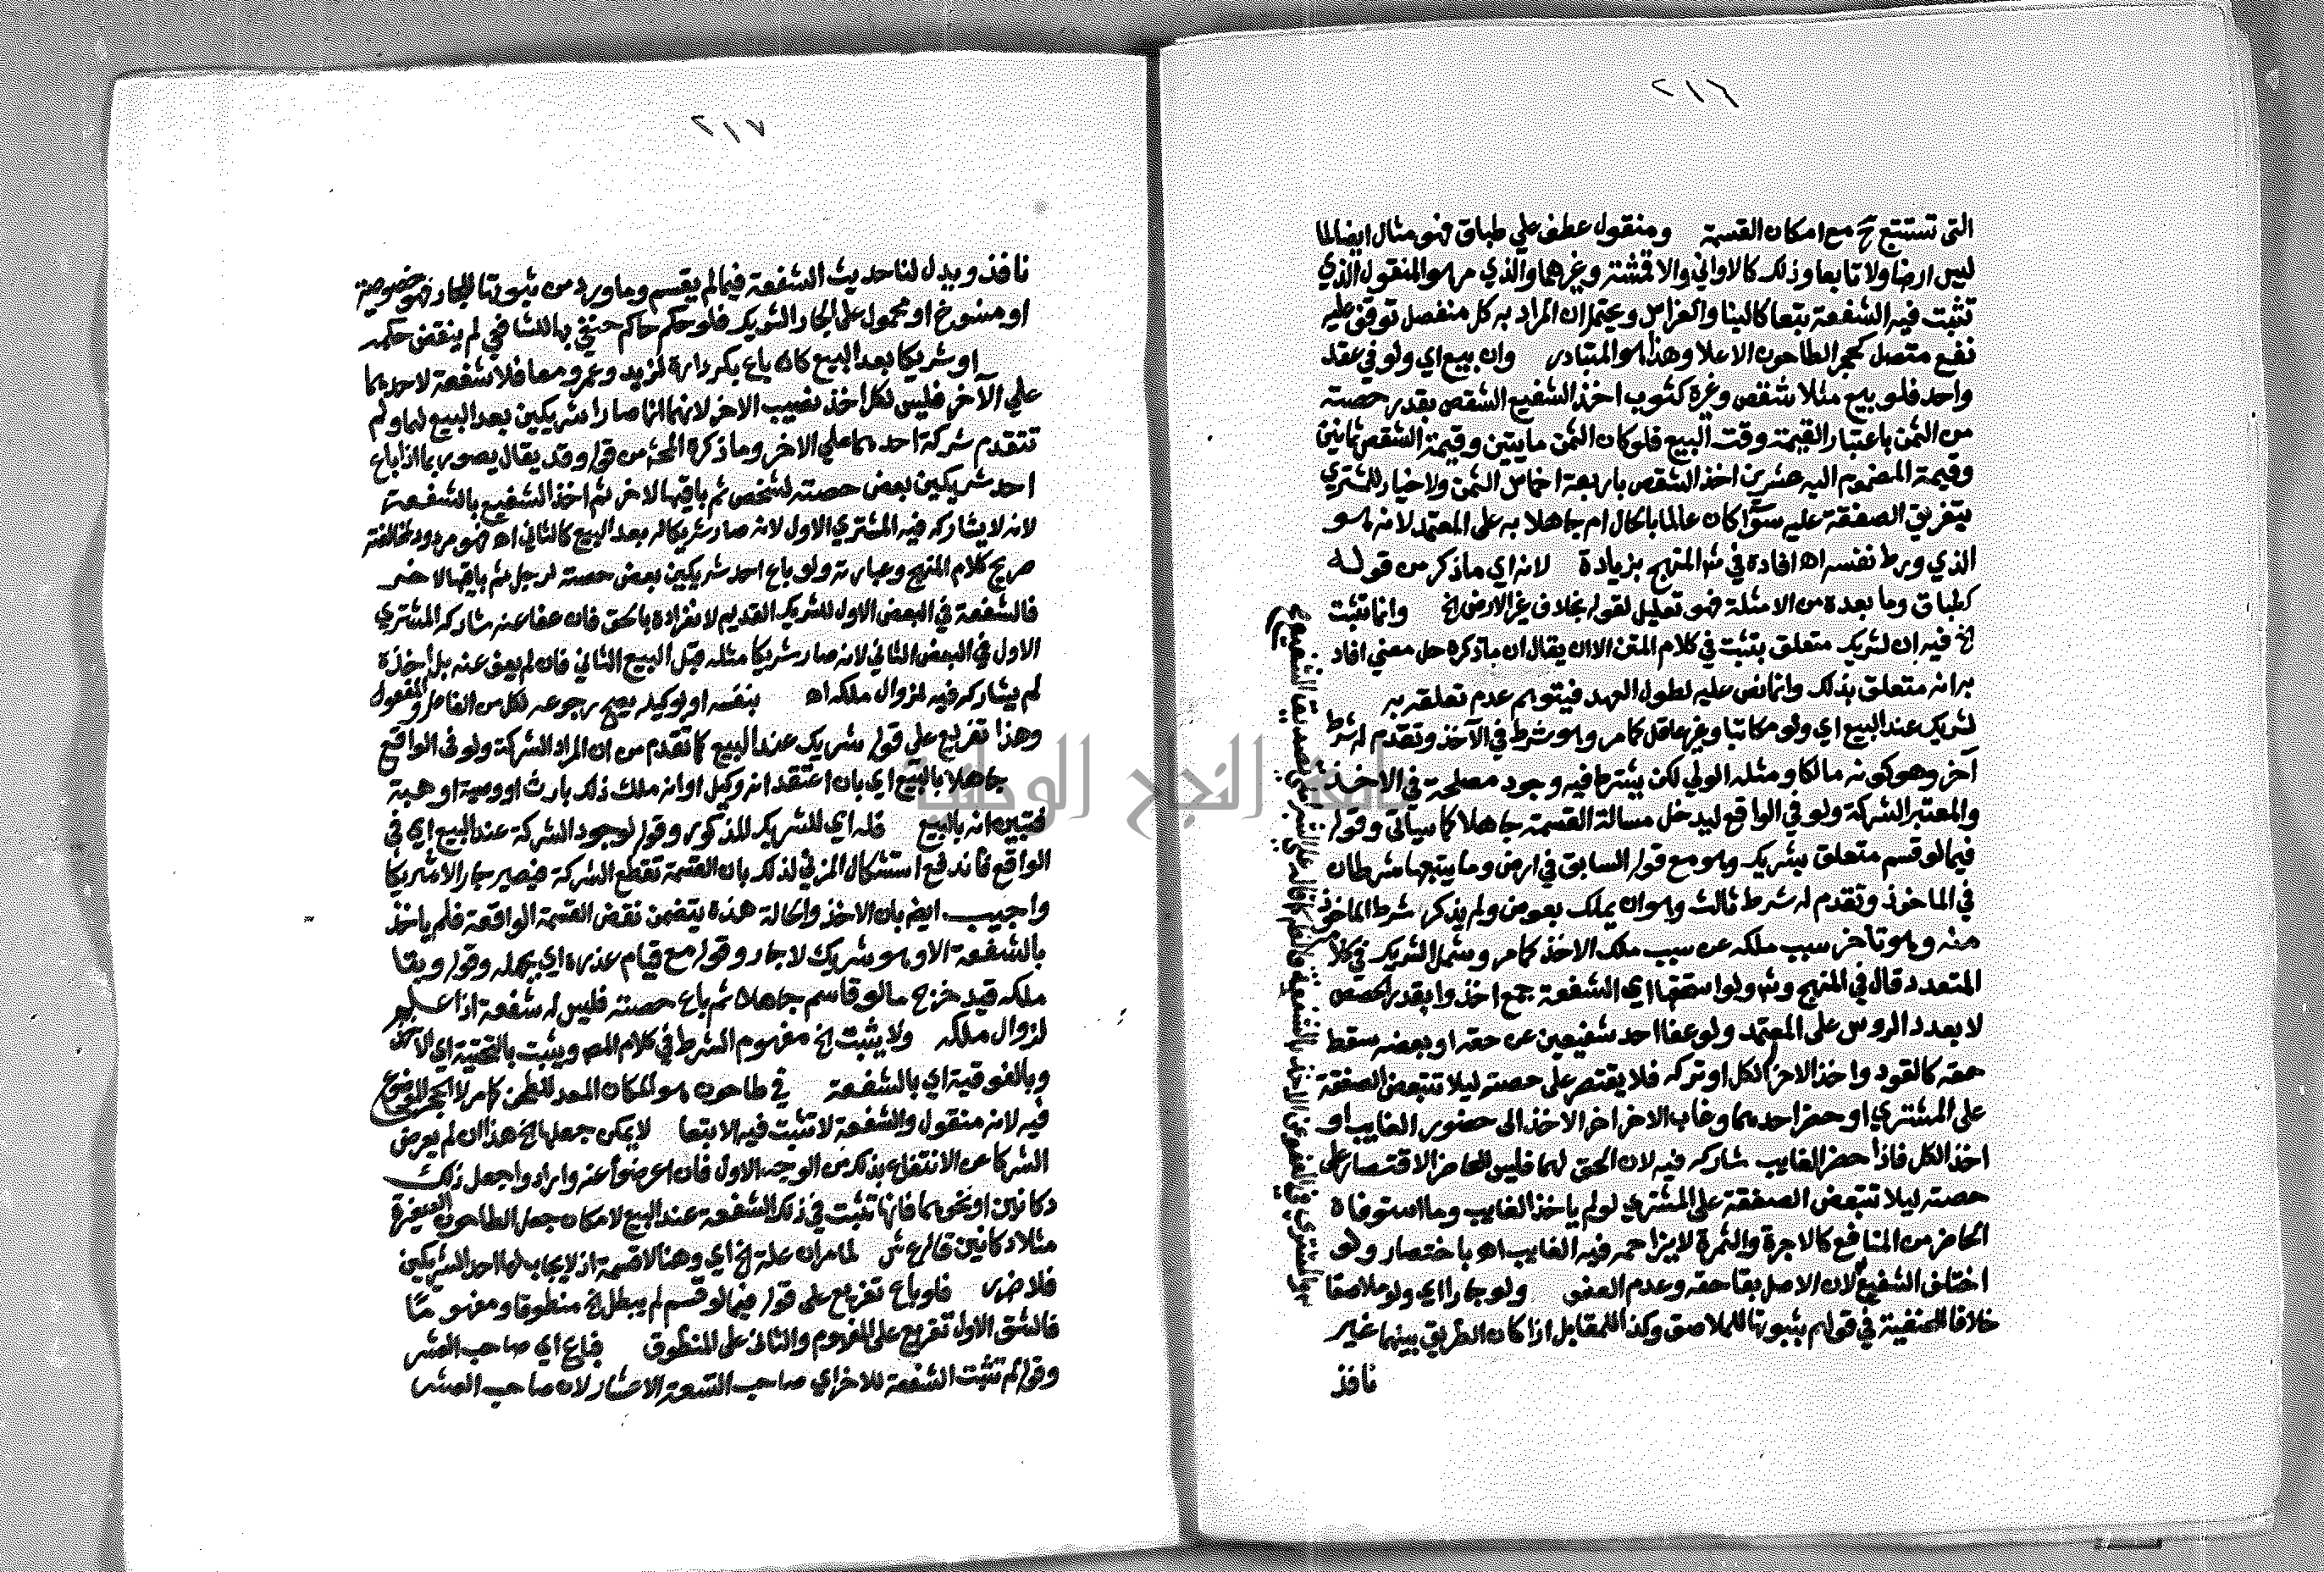 ٢١٦
التي تستتبع لخ مع امكان القسمة ومنقول عطف علي طباق فهو مثال ايضا لما
ليس ارضا ولا تابعا وذلك كالاواني والاقشة وغيرهما والذي مر هو المنقول الذي
تثبت فيه الشفعة تبعا كالبنا والغراس ويحتمل ان المراد به كل منفصل توقف عليه
نفع متصل كحجر الطاحون الاعلا وهذا هو المتبادر وان بيع اي ولو في عقد
واحد فلو بيع مثلا شقص وغيره كثوب اخذ الشفيع الشقص بقدر حصته
من الثمن باعتبار القيمة وقت البيع فلو كان الثمن مايتين وقيمة الشقص ثمانين
وقيمة المضموم اليه عشرين اخذ الشقص باربعة اخماس الثمن ولا خيار للمشتري
بتفريق الصفقة عليه سوآ كان عالما بالحال ام جاهلا به على المعتمد لانه هو
الذي ورط نفسه اه افاده في ش المنهج بزيادة لانه اي ما ذكر من قوله
كطباق وما بعده من الامثلة فهو تعليل لقوله بخلاف غير الارض لخ وانما تثبت
لخ فيه ان لشريك متعلق بتثبت في كلام المتن الا ان يقال ان ما ذكره حل معني افاد
به انه متعلق بذلك وانما نص عليه لطول العهد فيتوهم عدم تعلقه به
لشريك عند البيع اي ولو مكاتبا وغير عاقل كما مر وهو شرط في الآخذ وتقدم له شرط
آخر وهو كونه مالكا ومثله الولي لكن يشترط فيه وجود مصلحة في الاخذ
والمعتبر الشركة ولو في الواقع ليدخل مسالة القسمة جاهلا كما سياتي وقوله
فيما لو قسم متعلق بشريك وهو مع قوله السابق في ارض وما يتبعها شرطان
في الماخوذ وتقدم له شرط ثالث وهو ان يملك بعوض ولم يذكر شرط الماخوذ
منه وهو تاخر سبب ملكه عن سبب ملك الاخذ كما مر وشمل الشريك في كلامه
المتعدد قال في المنهج وش ولو استحقها اي الشفعة جمع اخذوا بقدر الحصص
لا بعدد الروس على المعتمد ولو عفا احد شفيعين عن حقه او بعضه سقط
حقه كالقود واخذ الاخر الكل او تركه فلا يقتصر على حصته ليلا تتبعض الصفقة
على المشتري او حضر احدهما وغاب الاخر اخر الاخذ الى حضور الغايب او
اخذ الكل فاذا حضر الغايب شاركه فيه لان الحق لهما فليس للحاضر الاقتصار على
حصته ليلا تتبعض الصفقة على المشتري لو لم ياخذ الغايب وما استوفاه
الحاضر من المنافع كالاجرة والثمرة لا يزاحمه فيه الغايب اه باختصار ولو
اختلف الشفيع لان الاصل بقا حقه وعدم العفو ولو جارا اي ولو ملاصقا
خلافا للحنفية في قولهم بثبوتها للملاصق وكذا للمقابل اذا كان الطريق بينهما غير
نافذ
٢١٧
نافذ ويدل لنا حديث الشفعة فيما لم يقسم وما ورد من ثبوتها للجار فهو خصوصية
او منسوخ او محمول على الجار الشريك فلو حكم حاكم حنفي بها للشافعي لم ينقض حكمه
او شريكا بعد البيع كان باع بكر داره لزيد وعمرو معا فلا شفعة لاحدهما
علي الآخر فليس لكل اخذ نصيب الاخر لانهما انما صارا شريكين بعد البيع لهما ولم
تتقدم شركة احدهما علي الاخر وما ذكره المحشي من قوله وقد يقال يصور بما اذا باع
احد شريكين بعض حصته لشخص ثم باقيها لاخر ثم اخذ الشفيع بالشفعة
لانه لا يشاركه فيه المشتري الاول لانه صار شريكا له بعد البيع كالثاني اه فهو مردود لمخالفته
صريح كلام المنهج وعبارته ولو باع احد شريكين بعض حصته لرجل ثم باقيها لاخر
فالشفعة في البعض الاول للشريك القديم لانفراده بالحق فان عفا عنه شاركه المشتري
الاول في البعض الثاني لانه صار شريكا مثله قبل البيع الثاني فان لم يعف عنه بل اخذه
لم يشاركه فيه لزوال ملكه اه بنفسه او بوكيله يصح رجوعه لكل من الفاعل والمفعول
وهذا تفريع على قوله شريك عند البيع كما تقدم من ان المراد الشركة ولو في الواقع
جاهلا بالبيع اي بان اعتقد انه وكيل او انه ملك ذلك بارث او وصية او هبة
فتبين انه بالبيع فله اي للشريك المذكور وقوله لوجود الشركة عند البيع اي في
الواقع فاندفع استشكال المزني لذلك بان القسمة تقطع الشركة فيصير جارا لا شريكا
واجيب ايض بان الاخذ والحالة هذه يتضمن نقض القسمة الواقعة فلم ياخذ
بالشفعة الا وهو شريك لا جار وقوله مع قيام عذره اي بجهله وقوله وبقا
ملكه قيد خرج ما لو قاسم جاهلا ثم باع حصته فليس له شفعة اذا علم
لزوال ملكه ولا يثبت لخ مفهوم الشرط في كلام المص ويثبت بالتحتية اي الاخذ
وبالفوقية اي بالشفعة في طاحون هو المكان المعد للطحن كما مر لا الحجر الموضوع
فيه لانه منقول والشفعة لا تثبت فيه الا تبعا لا يمكن جعلها لخ هذا ان لم يعرض
الشركا عن الانتفاع بذلك من الوجه الاول فان اعرضوا عنه وارادوا جعل ذلك
دكانين او نحوهما فانها تثبت في ذلك الشفعة عند البيع لامكان جعل الطاحون الصغيرة
مثلا دكانين قاله ع ش لما مر ان علة لخ اي وهنا لا قسمة اذ لا يجاب لها احد الشريكين
فلا ضرر فلو باع تفريع على قوله فيما لو قسم لم يبطل لخ منطوقا ومفهوما
فالشق الاول تفريع على المفهوم والثاني على المنطوق فباع اي صاحب العشر
وقوله لم تثبت الشفعة للاخر اي صاحب التسعة الاعشار لان صاحب العشر